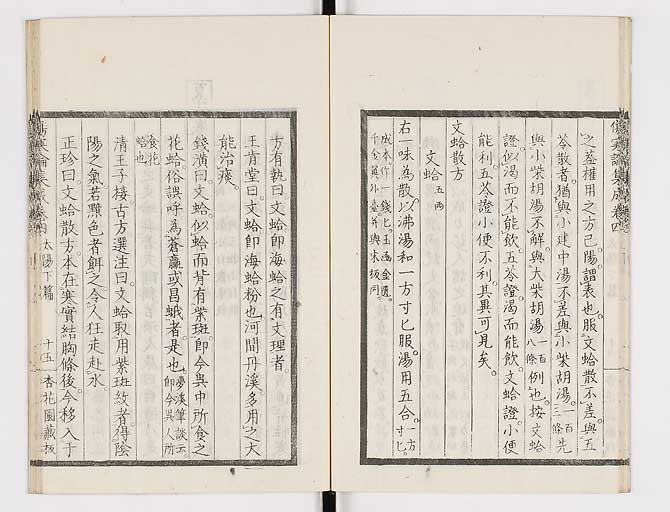 傷寒論集成卷四
之葢權用之方已陽謂表也服文蛤散不差與五
苓散者猶與小建中湯不差與小柴胡湯一百三條先
與小柴胡湯不解與大柴胡湯一百八條例也按文蛤
證似渴而不能飲五苓證渴而能飲文蛤證小便
能利五苓證小便不利其異可見矣
文蛤散方
文蛤五兩
右一味為散以沸湯和一方寸匕服湯用五合一方寸匕
成本作一錢匕玉函金匱
千金翼外臺并與宋板同
方有執曰文蛤即海蛤之有文理者
王肯堂曰文蛤即海蛤粉也河間丹溪多用之大
能治痰
錢潢曰文蛤似蛤而背有紫斑即今吳中所食之
花蛤俗誤呼為蒼蠃或昌蛾者是也夢溪筆談云即今吳人所
食花蛤也
清王子接古方選注曰文蛤取用紫斑紋者得陰
陽之氣若黯色者餌之令人狂走赴水
正珍曰文蛤散方本在寒實結胸條後今移入于
傷寒論集成卷四 太陽下篇 十五 杏花園藏板